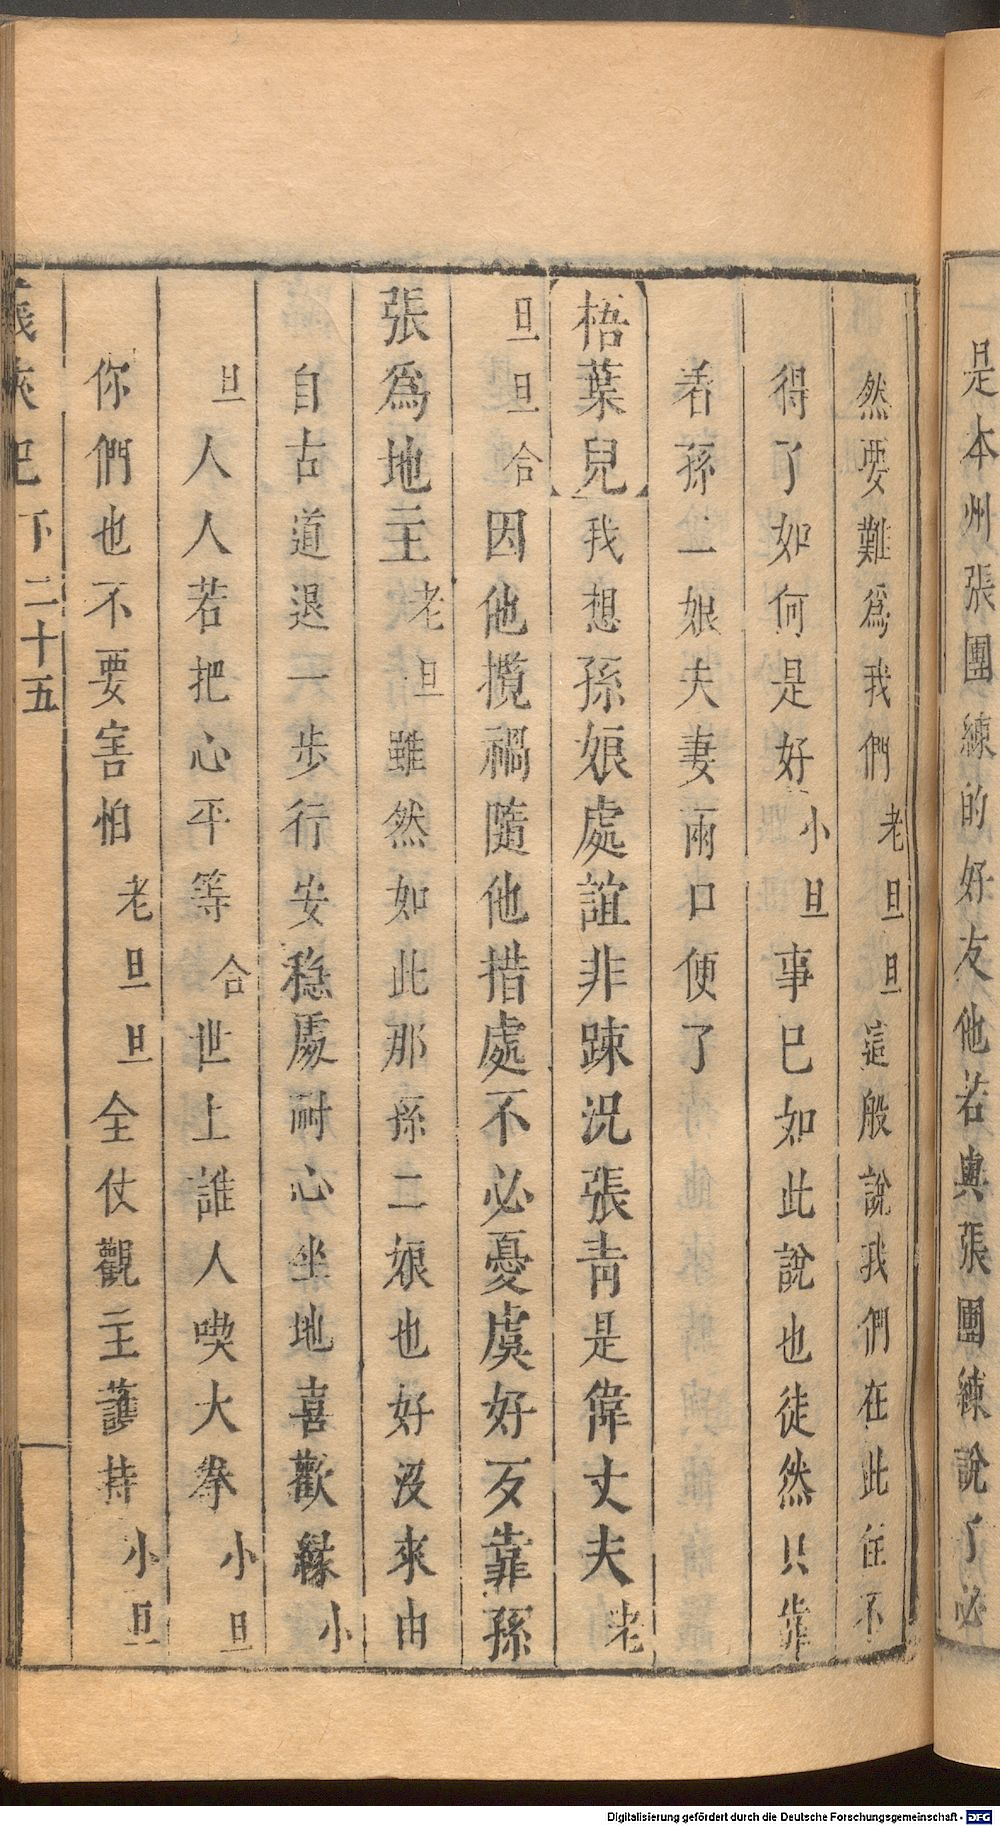 是本州張團練的好友他若與張團練說了必
然要難爲我們老旦旦這般說我們在此住不
得了如何是好小旦事已如此說也徒然只靠
着孫二娘夫妻兩口便了
梧葉兒我想孫娘處誼非踈況張靑是偉丈夫老
旦旦合因他攬禍隨他措處不必憂虞好歹靠孫
張爲地主老旦雖然如此那孫二娘也好沒來由
自古道退一步行安穩處耐心坐地喜歡緣小
旦人人若把心平等合世上誰人喫大拳小旦
你們也不要害怕老旦旦全仗觀主護持小旦
義俠記下二十五
Digitalisierung gefördert durch die Deutsche Forschungsgemeinschaft - DFG